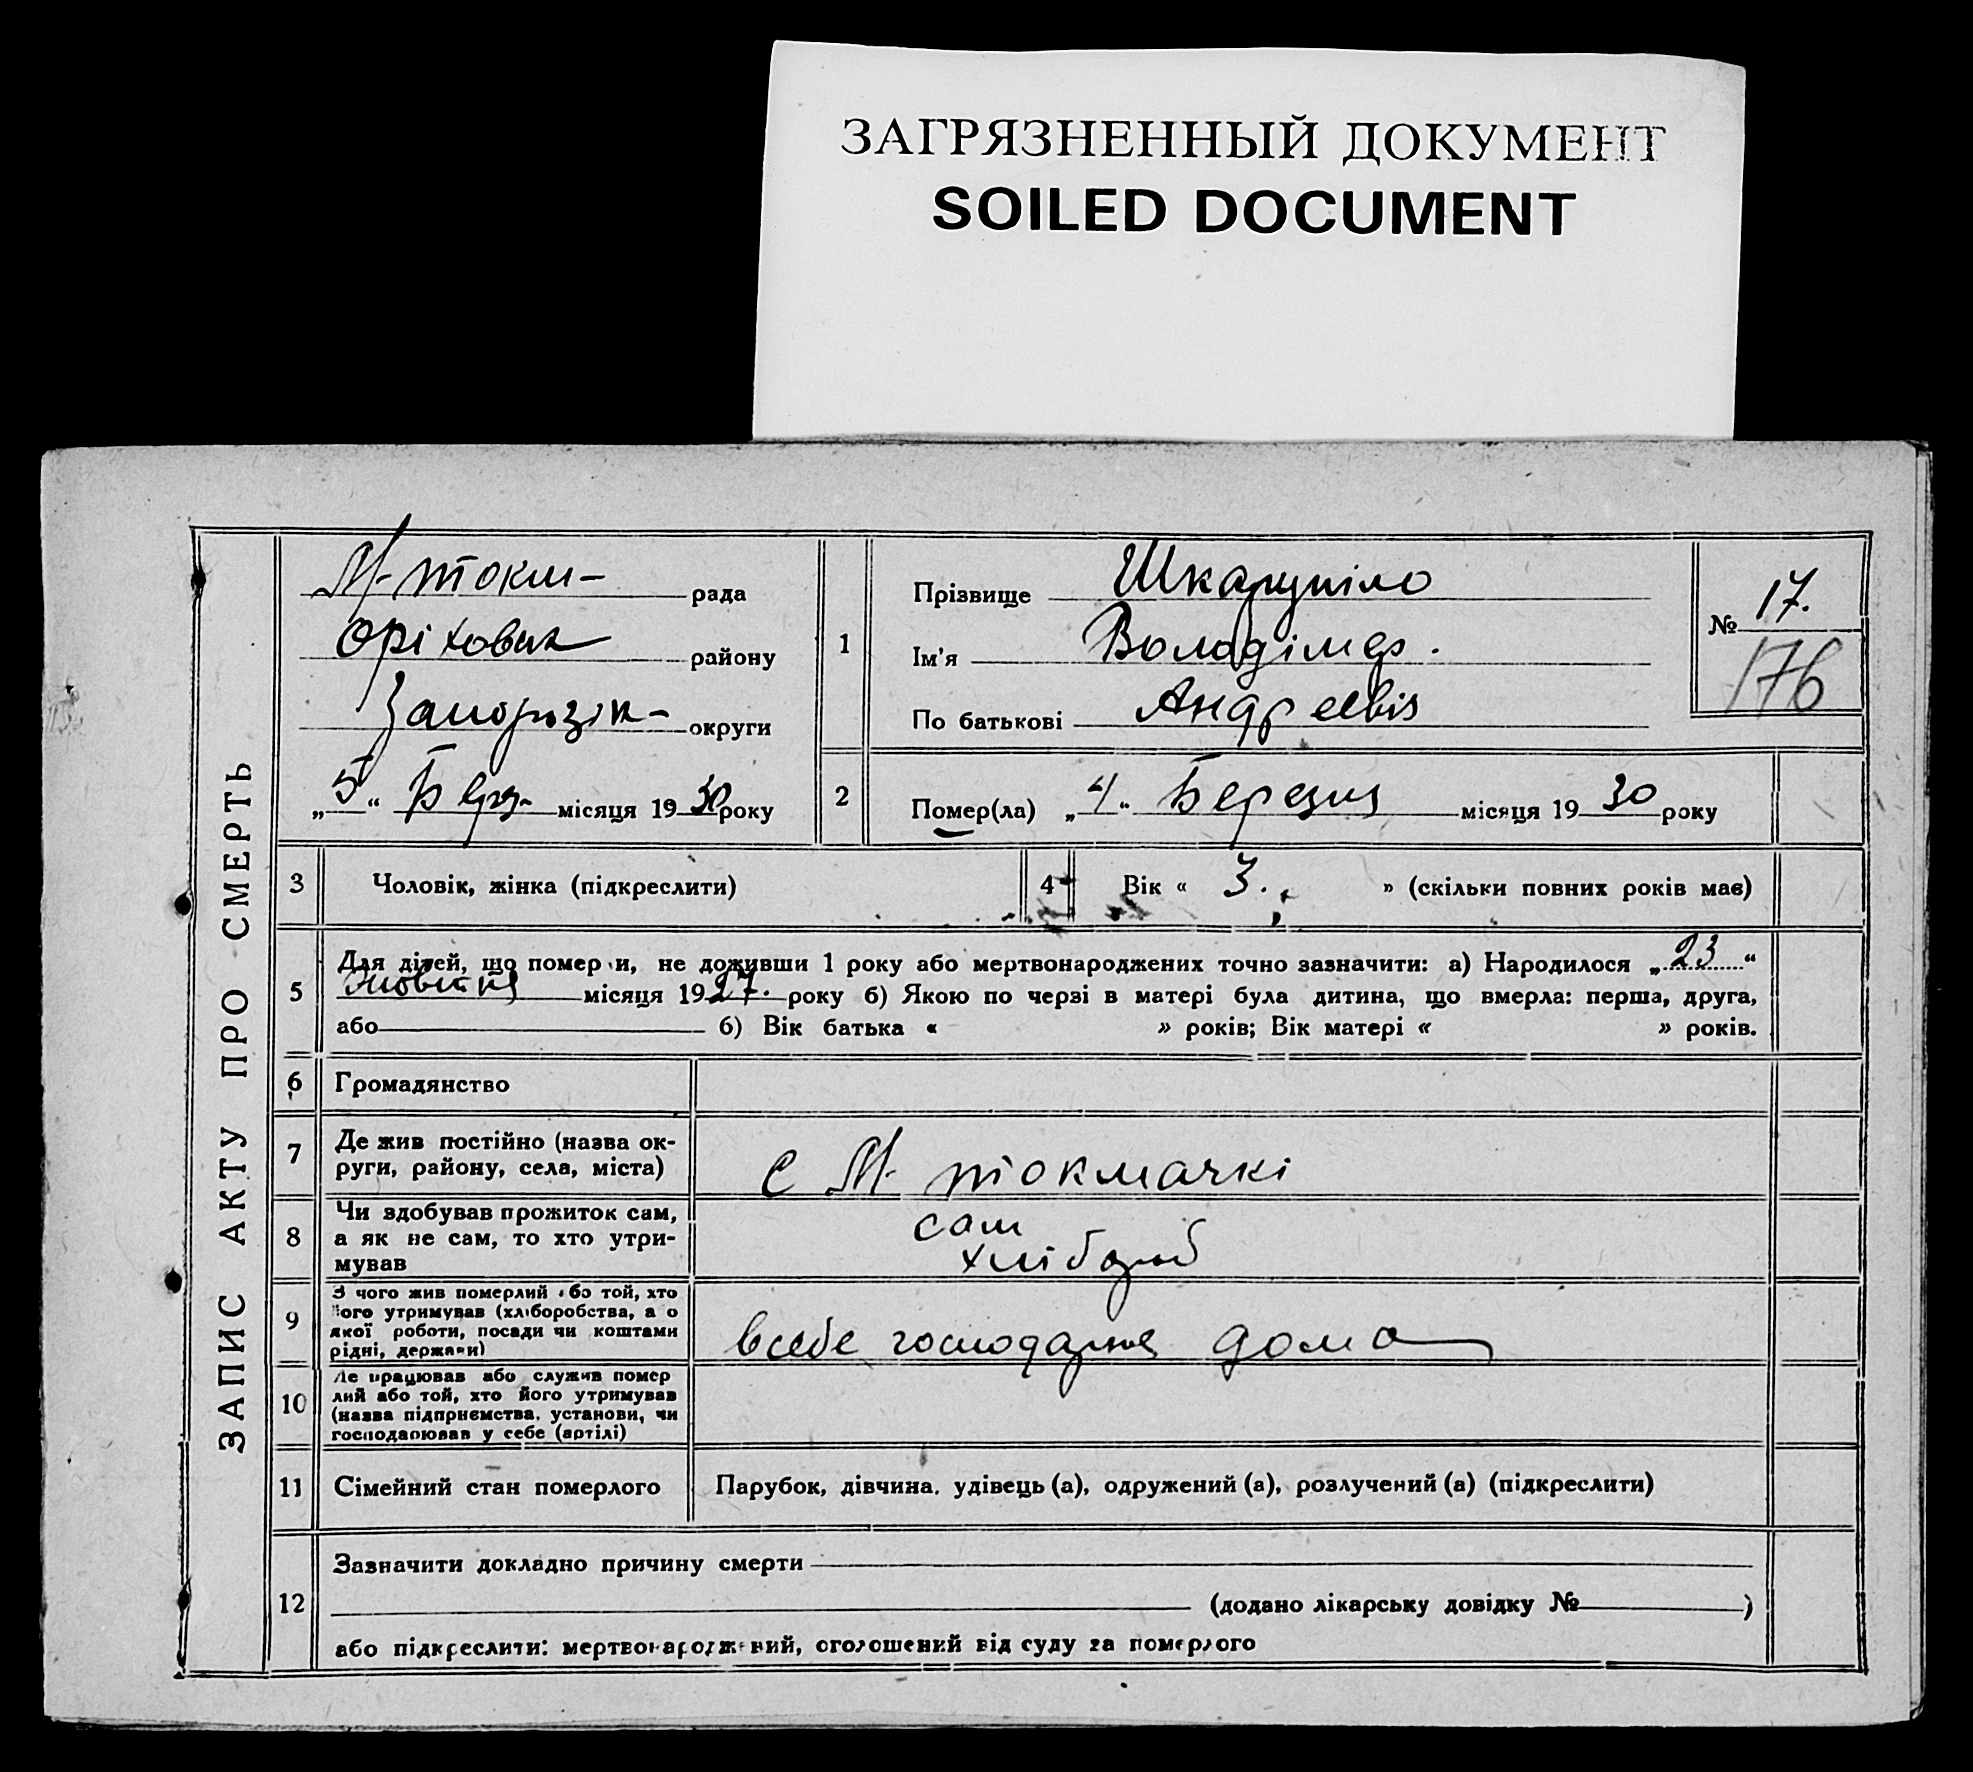 ЗАГРЯЗНЕННЫЙ ДОКУМЕНТ
SOILED DOCUMENT
ЗАПИС АКТУ ПРО СМЕРТЬ
М-токм- рада
Оріховск району
Запорізк- округи
„5“ Берз- місяця 1930 року
1
Прізвище Шкарупіло
Ім'я Володімер.
По батькові Андреевіз
№ 17.
176
2
Помер(ла) „4“ Березня місяця 1930 року
3 Чоловік, жінка (підкреслити)
4 Вік « 3. » (скільки повних років має)
5
Для дітей, що померли, не доживши 1 року або мертвонароджених точно зазначити: а) Народилося „23“
місяця 1927. року б) Якою по черзі в матері була дитина, що вмерла: перша, друга,
або б) Вік батька « » років; Вік матері « » років.
6 Громадянство
7 Де жив постійно (назва ок-
руги, району, села, міста)
с М-токмачкі
8 Чи здобував прожиток сам,
а як не сам, то хто утри-
мував
сам
хлібороб
9 З чого жив померлий або той, хто
його утримував (хліборобства, а о
якої роботи, посади чи коштами
рідні, держави)
всебе господарює дома
10 Де працював або служив помер
лий або той, хто його утримував
(назва підприємства, установи, чи
господарював у себе (артілі)
11 Сімейний стан померлого
Парубок, дівчина, удівець (а), одружений (а), розлучений (а) (підкреслити)
12
Зазначити докладно причину смерти
(додано лікарську довідку № )
або підкреслити: мертвонароджений, оголошений від суду за померлого